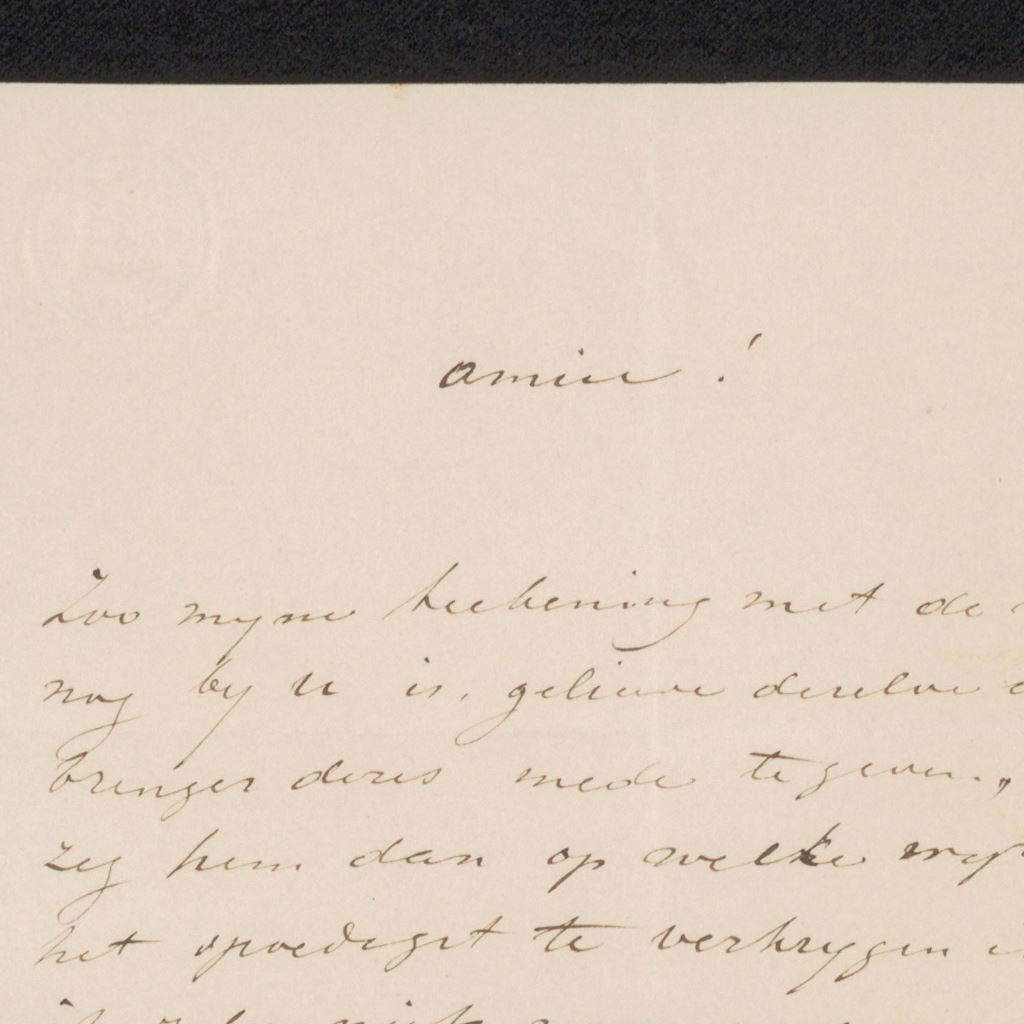 amice !
Zoo myne teekening met de
nog by u is, gelieve deselve
brenger deses mede te geven,,
zeg hem dan op welke wys
het spoedigst te verkrygen